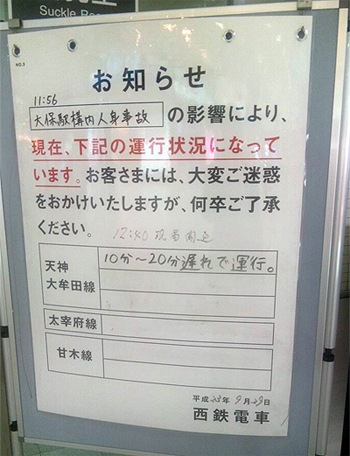 Suckle
NO.3
お知らせ
11:56
大保駅構内人身事故 の影響により、
現在、下記の運行状況になって
います。お客さまには、大変ご迷惑
をおかけいたしますが、何卒ご了承
ください。
12:40 現着
天神
大牟田線
10分〜20分遅れで運行。
太宰府線
甘木線
平成25年9月29日
西鉄電車